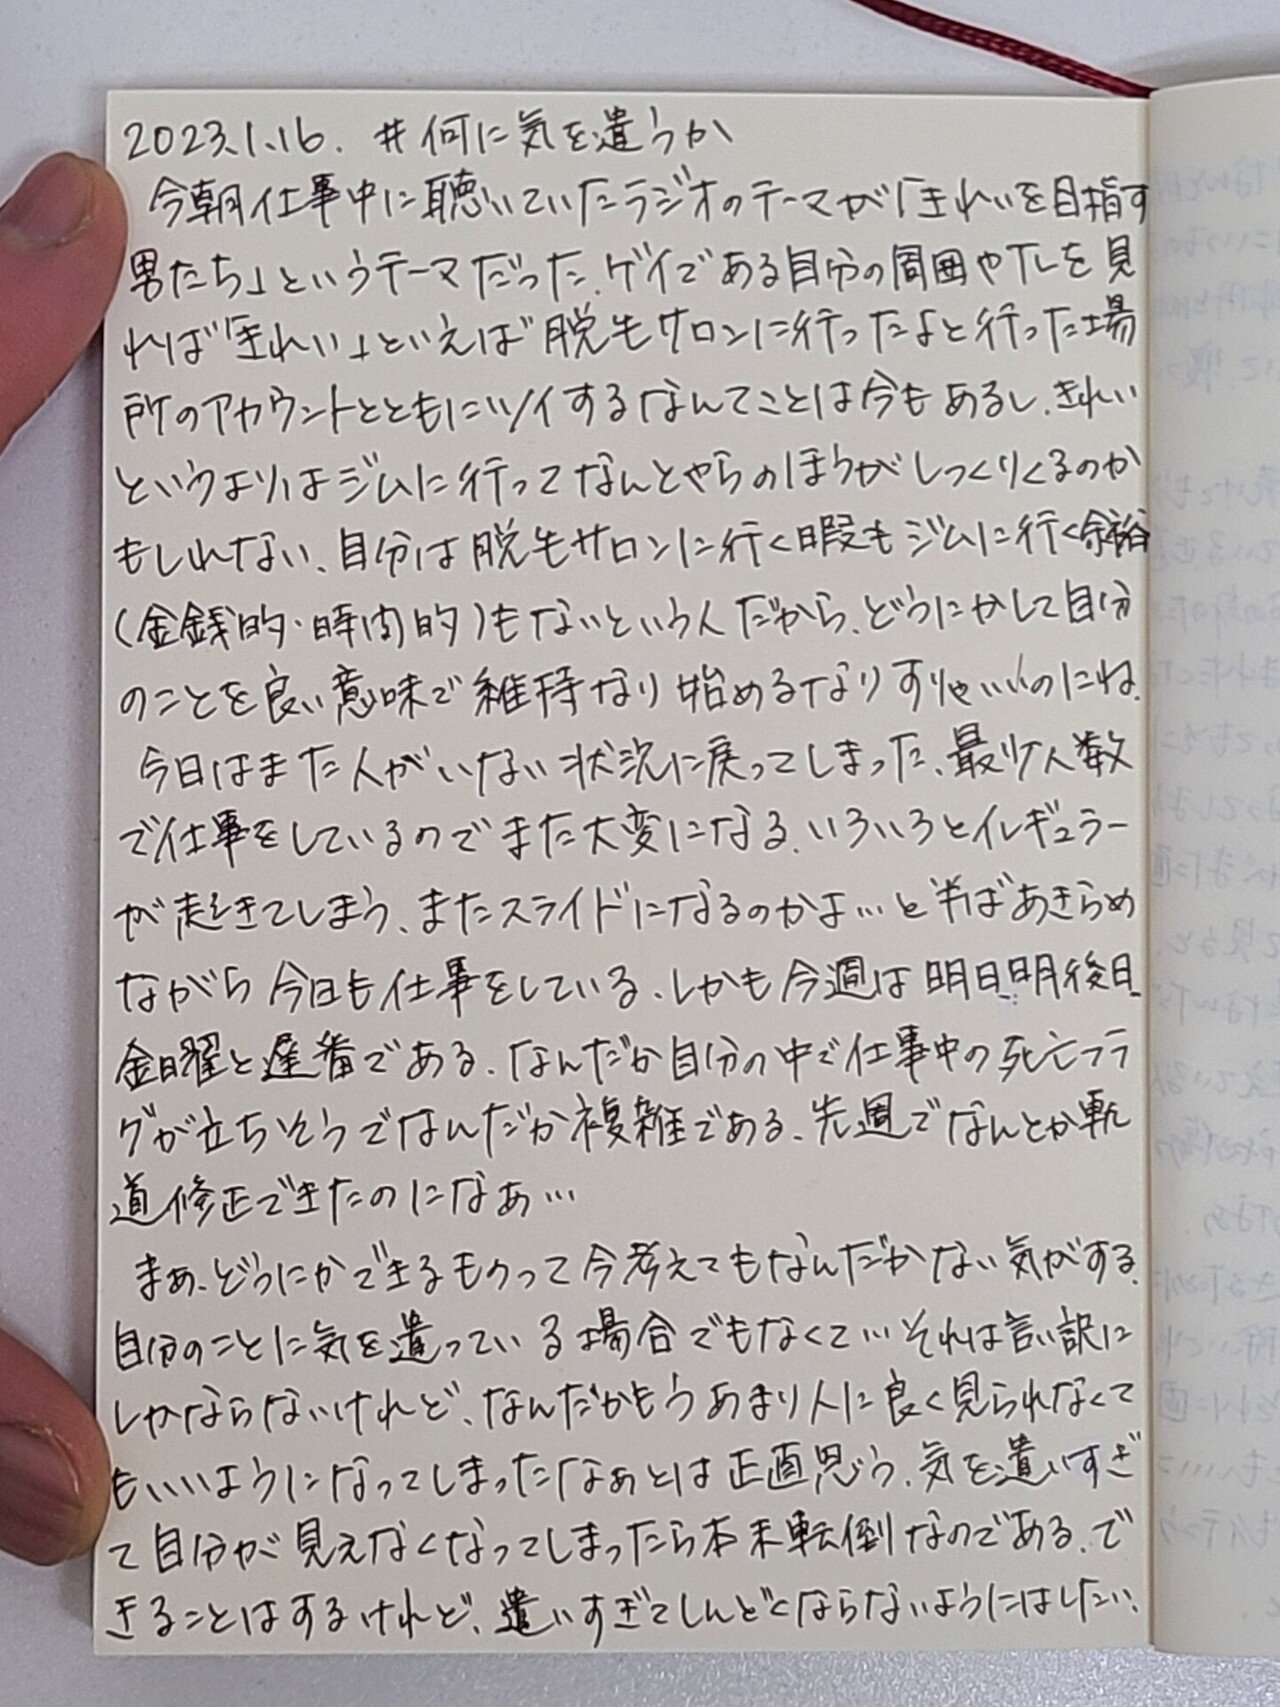 2023.1.16. #何に気を遣うか
今朝仕事中に聴いていたラジオのテーマが「きれいを目指す
男たち」というテーマだった、ゲイである自分の周囲やTLを見
れば「きれい」といえば脱毛サロンに行ったよと行った場
所のアカウントとともにツイするなんてことは今もあるし、きれい
というよりはジムに行ってなんとやらのほうがしっくりくるのか
もしれない、自分は脱毛サロンに行く暇もジムに行く余裕
(金銭的・時間的)もないという人だから、どうにかして自分
のことを良い意味で維持なり始めるなりすりゃいいのにね、
今日はまた人がいない状況に戻ってしまった、最少人数
で仕事をしているのでまた大変になる、いろいろとイレギュラー
が起きてしまう、またスライドになるのかよ…と半ばあきらめ
ながら今日も仕事をしている、しかも今週は明日、明後日、
金曜と遅番である、なんだか自分の中で仕事中の死亡フラ
グが立ちそうでなんだか複雑である、先週でなんとか軌
道修正できたのになぁ…
まぁ、どうにかできるものって今考えてもなんだかない気がする、
自分のことに気を遣っている場合でもなくて…それは言い訳に
しかならないけれど、なんだかもうあまり人に良く見られなくて
もいいようになってしまったなぁとは正直思う、気を遣いすぎ
て自分が見えなくなってしまったら本末転倒なのである、で
きることはするけれど、遣いすぎてしんどくならないようにはしたい、